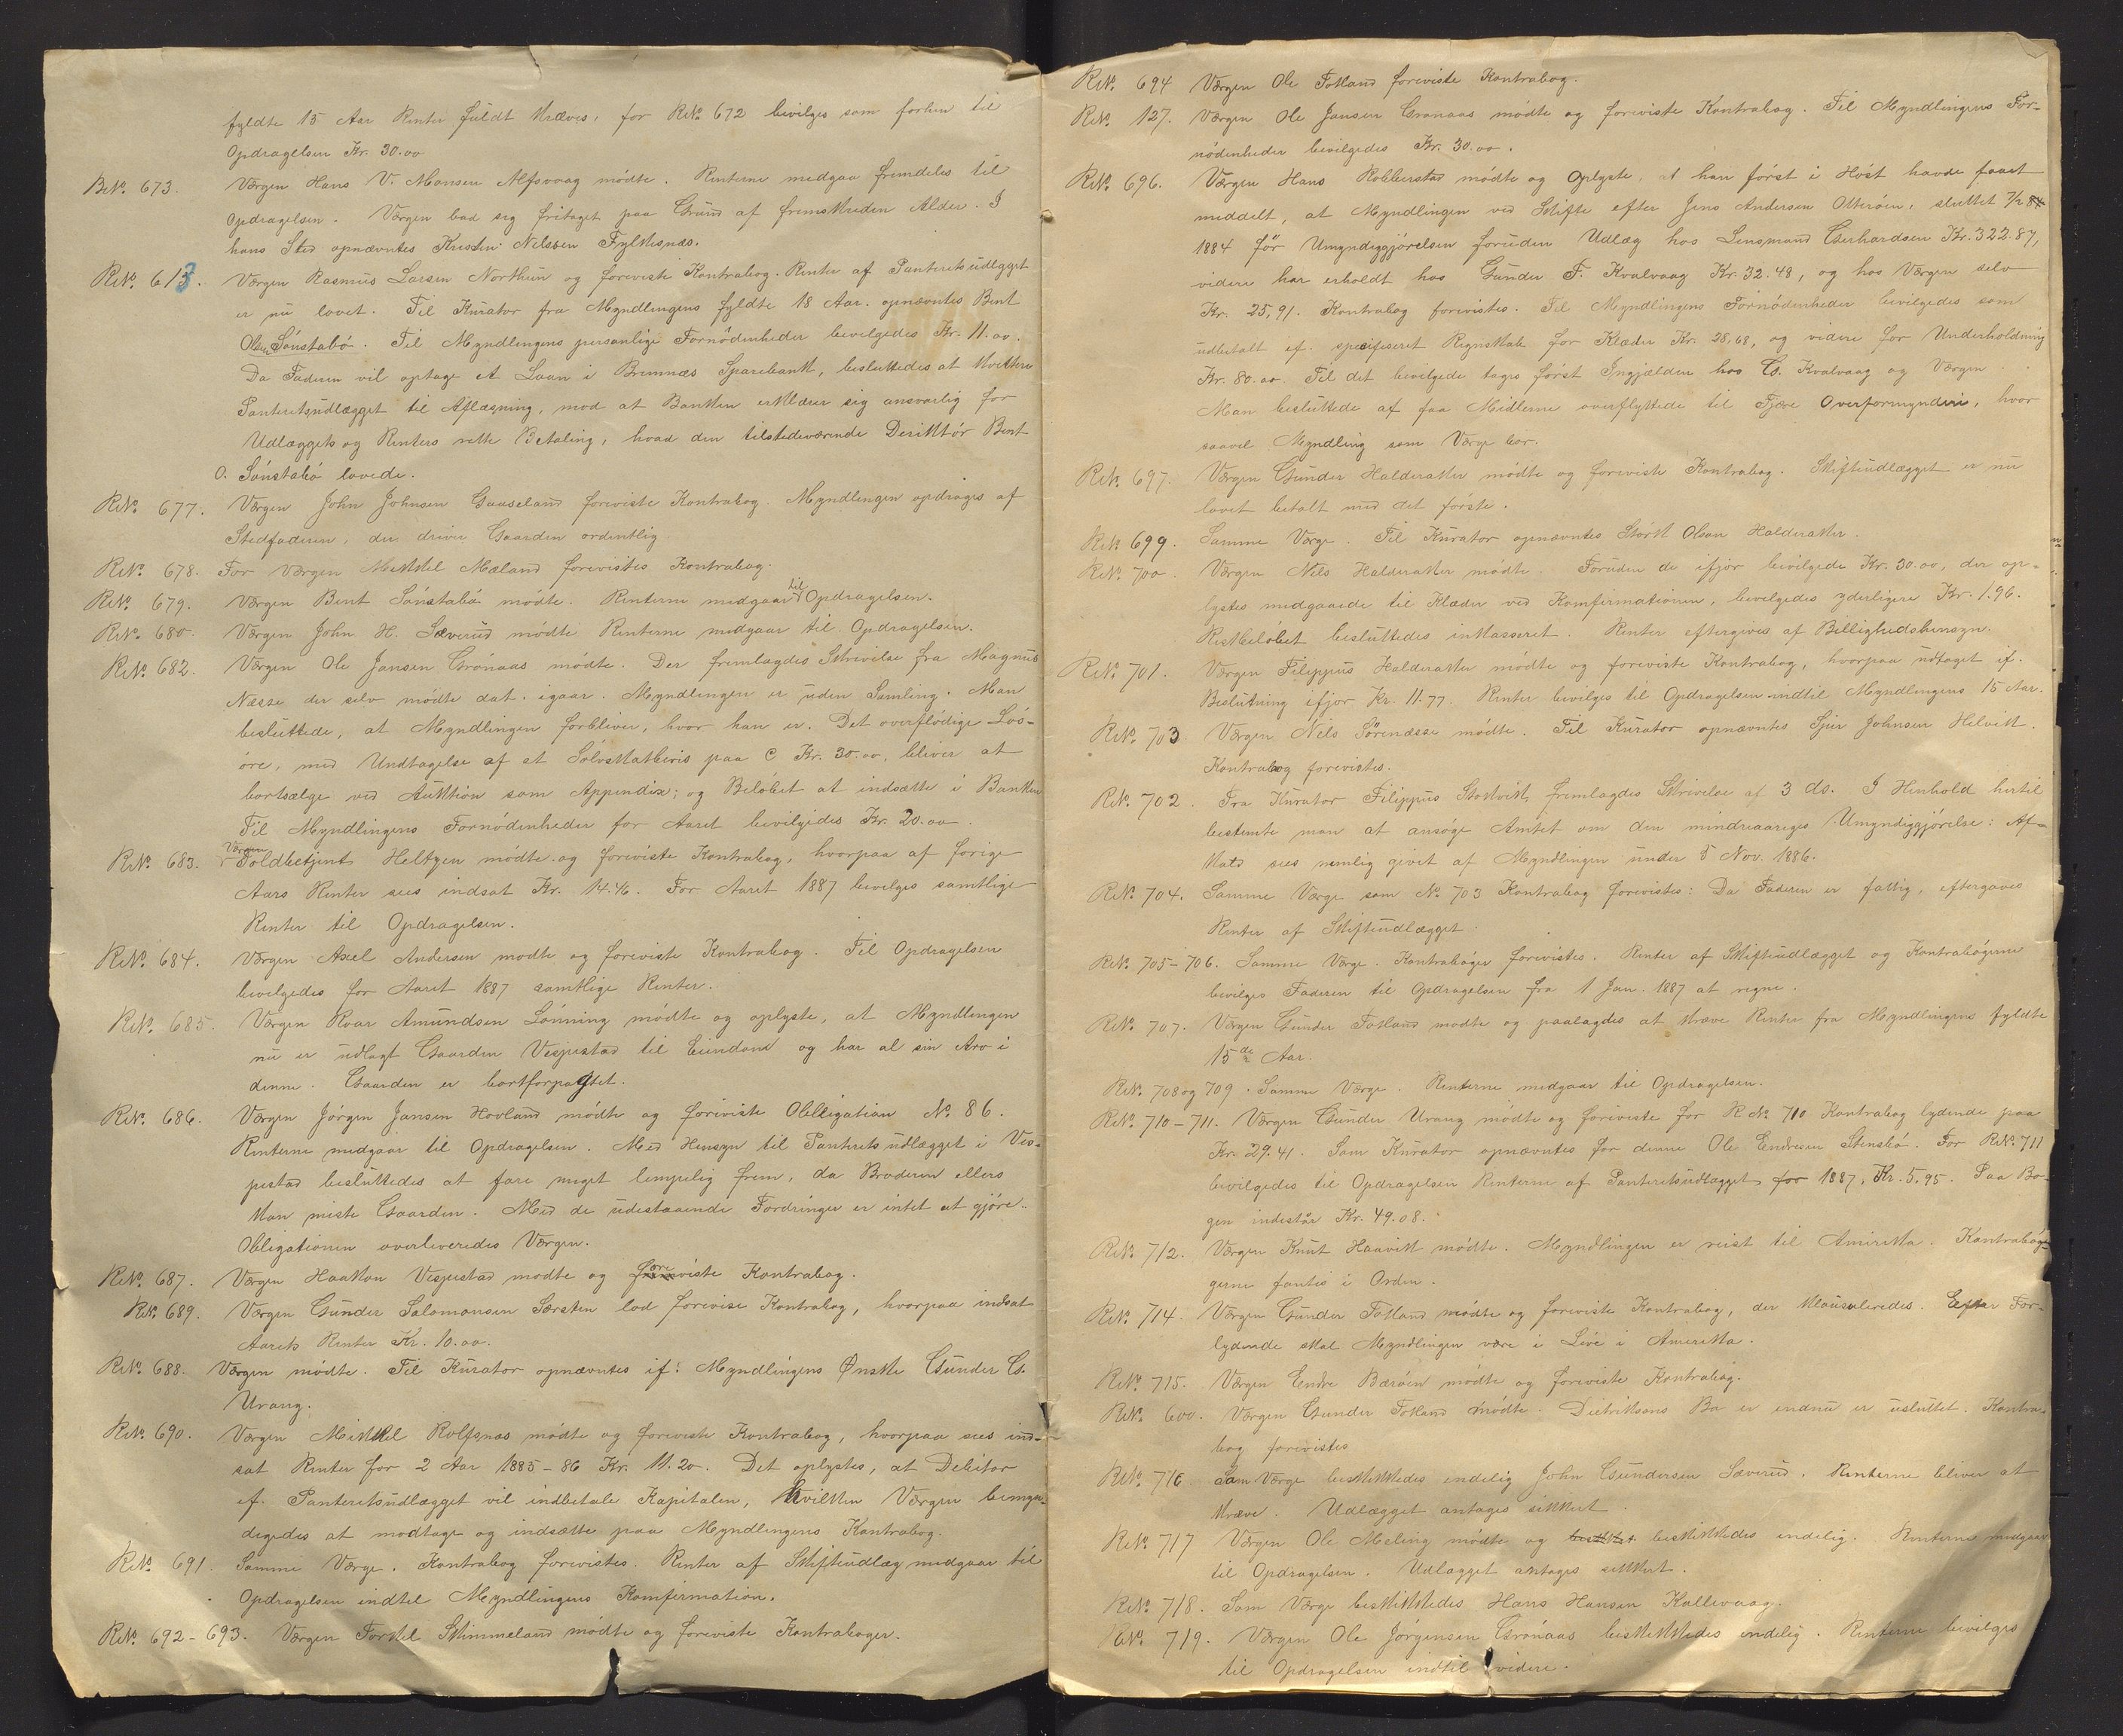 fyldte 15 Aar Renter fuldt kræves, for R.No. 672 bevilges som forhen til
Opdragelsen Kr. 30.00
R.No. 673. Værgen Hans V. Monsen Alfsvaag mødte. Renterne medgaa fremdeles til
Opdragelsen. Værgen bad sig fritaget paa Grund af fremskreden Alder. I
hans Sted opnævntes Kristen Nilssen Fylkesnæs.
R.No. 613. Værgen Rasmus Larsen Northun og foreviste Kontrabog. Renter af Panteretsudlægget
er nu lovet. Til Kurator fra Myndlingens fyldte 18 Aar opnævntes Bent
Olsen Sønstabø. Til Myndlingens personlige Fornødenheder bevilgedes Kr. 11.00.
Da Faderen vil optage et Laan i Bremnæs Sparebank, besluttedes at kvittere
Panteretsudlægget til Aflæsning, mod at Banken erklærer sig ansvarlig for
Udlæggets og Renters rette Betaling, hvad den tilstedeværende Direktør Bent
O. Sønstabø lovede.
R.No. 677. Værgen John Johnsen Gaaseland foreviste Kontrabog. Myndlingen opdrages af
Stedfaderen, der driver Gaarden ordentlig
R.No. 678. For Værgen Mikkel Mæland forevistes Kontrabog.
R.No. 679. Værgen Bent Sønstabø mødte. Renterne medgaar til Opdragelsen.
R.No. 680. Værgen John H. Sæverud mødte Renterne medgaar til Opdragelsen.
R.No. 682. Værgen Ole Jansen Grønaas mødte. Der fremlagdes Skrivelse fra Magnus
Næsse der selv mødte dat. igaar. Myndlingen er uden Samling. Man
besluttede, at Myndlingen forbliver, hvor han er. Det overflødige Løs-
øre, med Undtagelse af et Sølvskatberis paa C Kr. 30.00, bliver at
bortsælge ved Auktion som Appendix; og Beløbet at indsætte i Banken
Til Myndlingens Fornødenheder for Aaret bevilgedes Kr. 20.00.
R.No. 683. Værgen Toldbetjent Heltzen mødte og foreviste Kontrabog, hvorpaa af forige
Aars Renter sees indsat Kr. 14.46. For Aaret 1887 bevilges samtlige
Renter til Opdragelsen.
R.No. 684. Værgen Axel Andersen mødte og foreviste Kontrabog. Til Opdragelsen
bevilgedes for Aaret 1887 samtlige Renter.
R.No. 685. Værgen Roar Amundsen Lønning mødte og oplyste, at Myndlingen
nu er udlagt Gaarden Vespestad til Eiendom og har al sin Arv i
denne. Gaarden er bortforpagtet.
R.No. 686. Værgen Jørgen Jansen Hovland mødte og foreviste Obligation No. 86.
Renterne medgaar til Opdragelsen. Med Hensyn til Panteretsudlægget i Ves-
pestad besluttedes at fare meget lempelig frem, da Broderen ellers
kan miste Gaarden. Med de udestaaende Fordringer er intet at gjøre.
Obligationen overleveredes Værgen.
R.No. 687. Værgen Haakon Vespestad mødte og foreviste Kontrabog.
R.No. 689. Værgen Gunder Salomonsen Sørsten lod forevise Kontrabog, hvorpaa indsat
Aarets Renter Kr. 10.00.
R.No. 688. Værgen mødte. Til Kurator opnævntes if: Myndlingens Ønske Gunder G.
Urang.
R.No. 690. Værgen Mikkel Rolfsnæs mødte og foreviste Kontrabog, hvorpaa sees ind-
sat Renter for 2 Aar 1885-86 Kr. 11.20. Det oplystes, at Debitor
ef. Panteretsudlægget vil indbetale Kapitalen, hvilken Værgen bemyn-
digedes at modtage og indsætte paa Myndlingens Kontrabog.
R.No. 691. Samme Værge. Kontrabog forevistes. Renter af Skifteudlæg medgaar til
Opdragelsen indtil Myndlingens Komfirmation.
R.No. 692-693. Værgen Torkel Skimmeland mødte og foreviste Kontrabøger.
R.No. 694 Værgen Ole Totland foreviste Kontrabog.
R.No. 127. Værgen Ole Jansen Grønaas mødte og foreviste Kontrabog. Til Myndlingens For-
nødenheder bevilgedes Kr. 30.00.
R.No. 696. Værgen Hans Robberstad mødte og Oplyste, at han først i Høst havde faaet
meddelt, at Myndlingen ved Skifte efter Jens Andersen Otterøen, sluttet 7/2 84
1884 før Umyndiggjørelsen foruden Udlæg hos Lensmand Gerhardsen Kr. 322.87,
videre har erholdt hos Gunder T. Kvalvaag Kr. 32.48, og hos Værgen selv
Kr. 25,91. Kontrabog forevistes. Til Myndlingens Fornødenheder bevilgedes som
udbetalt ef. specifiseret Regnskab for Klæder Kr. 28,68, og videre for Underholdning
Kr. 80.00. Til det bevilgede tages først Ingjælden hos G. Kvalvaag og Værgen.
Man besluttede at faa Midlerne overflyttede til Fjære Overformynderi, hvor
saavel Myndling som Værge bor.
R.No. 697. Værgen Gunder Halderaker mødte og foreviste Kontrabog. Skifteudlægget er nu
lovet betalt med det første.
R.No. 699. Samme Værge. Til Kurator opnævntes Størk Olson Halderaker.
R.No. 700. Værgen Nels Halderaker mødte. Foruden de ifjor bevilgede Kr. 30.00, der op-
lystes medgaaede til Klæder ved Komfirmationen, bevilgedes yderligere Kr. 1.96.
Restbeløbet besluttedes inkasseret. Renter eftergives af Billighedshensyn.
R.No. 701. Værgen Filippus Halderaker mødte og foreviste Kontrabog, hvorpaa udtaget if.
Beslutning ifjor Kr. 11.77. Renter bevilges til Opdragelsen indtil Myndlingens 15 Aar.
R.No. 703 Værgen Nils Sørenæsse mødte. Til Kurator opnævntes Sjur Johnsen Hilvik.
Kontrabog forevistes.
R.No. 702. Fra Kurator Filippus Stokvik fremlagdes Skrivelse af 3 ds. I Henhold hertil
bestemte man at ansøge Amtet om den mindreaariges Umyndiggjørelse: Af-
kald sees nemlig givet af Myndlingen under 5 Nov. 1886.
R.No. 704. Samme Værge som No. 703 Kontrabog forevistes: Da Faderen er fattig, eftergaves
Renter af Skifteudlægget.
R.No. 705-706. Samme Værge. Kontrabøger forevistes. Renter af Skifteudlægget og Kontrabøgerne
bevilges Faderen til Opdragelsen fra 1 Jan. 1887 at regne.
R.No. 707. Værgen Gunder Totland mødte og paalagdes at kræve Renter fra Myndlingens fyldte
15de Aar.
R.No. 708 og 709. Samme Værge. Renterne medgaar til Opdragelsen.
R.No. 710-711. Værgen Gunder Urang mødte og foreviste for R.No. 710 Kontrabog lydende paa
Kr. 29.41. Som Kurator opnævntes for denne Ole Endresen Stensbø. For R.No. 711
bevilgedes til Opdragelsen Renterne af Panteretsudlægget for 1887, Kr. 5.95. Paa Bo-
gen indestår Kr. 49.08.
R.No. 712. Værgen Knut Haavik mødte. Myndlingen er reist til Amerikka. Kontrabøg-
gerne fantes i Orden.
R.No. 714. Værgen Gunder Totland mødte og foreviste Kontrabog, der klausuleredes. Efter For-
lydende skal Myndlingen være i Live i Amerikka.
R.No. 715. Værgen Endre Børøen mødte og foreviste Kontrabog.
R.No. 600. Værgen Gunder Totland mødte. Dietriksons Bo er endnu er usluttet. Kontra-
bog forevistes
R.No. 716. Som Værge beskikkedes endelig John Gundersen Sæverud. Renterne bliver at
kræve. Udlægget antages sikkert.
R.No. 717 Værgen Ole Meling mødte og beskikkedes endelig. Renterne medgaar
til Opdragelsen. Udlægget antages sikkert.
R.No. 718. Som Værge beskikkedes Hans Hansen Kallevaag.
R.No. 719. Værgen Ole Jørgensen Grønaas beskikkedes endelig. Renterne bevilges
til Opdragelsen indtil videre.